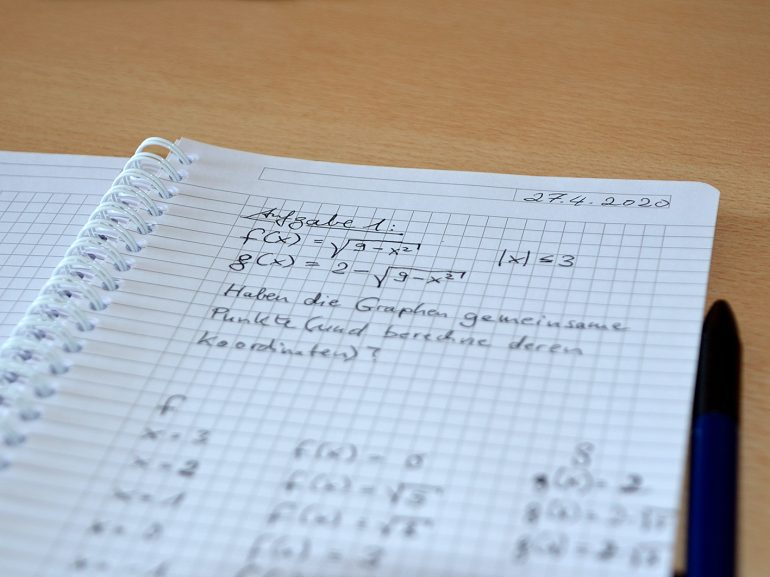 27.4.2020
Aufgabe 1:
f(x) = √9-x²
g(x) = 2-√9-x² |x| ≤ 3
Haben die Graphen gemeinsame
Punkte (und berechne deren
Koordinaten)?
f g
x = 3 f(x) = 0 g(x) = 2
x = 2 f(x) = √5
x = 1